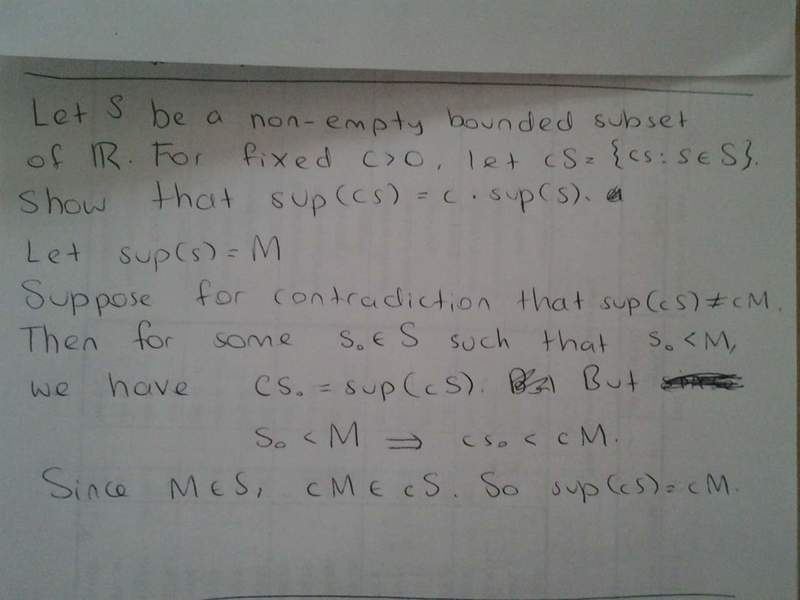 Let S be a non-empty bounded subset
of ℝ. For fixed c>0, let cS = {cs : s ∈ S}.
Show that sup(cS) = c . sup(S).
Let sup(s) = M
Suppose for contradiction that sup(cS) ≠ cM.
Then for some s₀ ∈ S such that s₀ < M,
we have cs₀ = sup(cS). But
s₀ < M ⇒ cs₀ < cM.
Since M ∈ S, cM ∈ cS. So sup(cS) = cM.